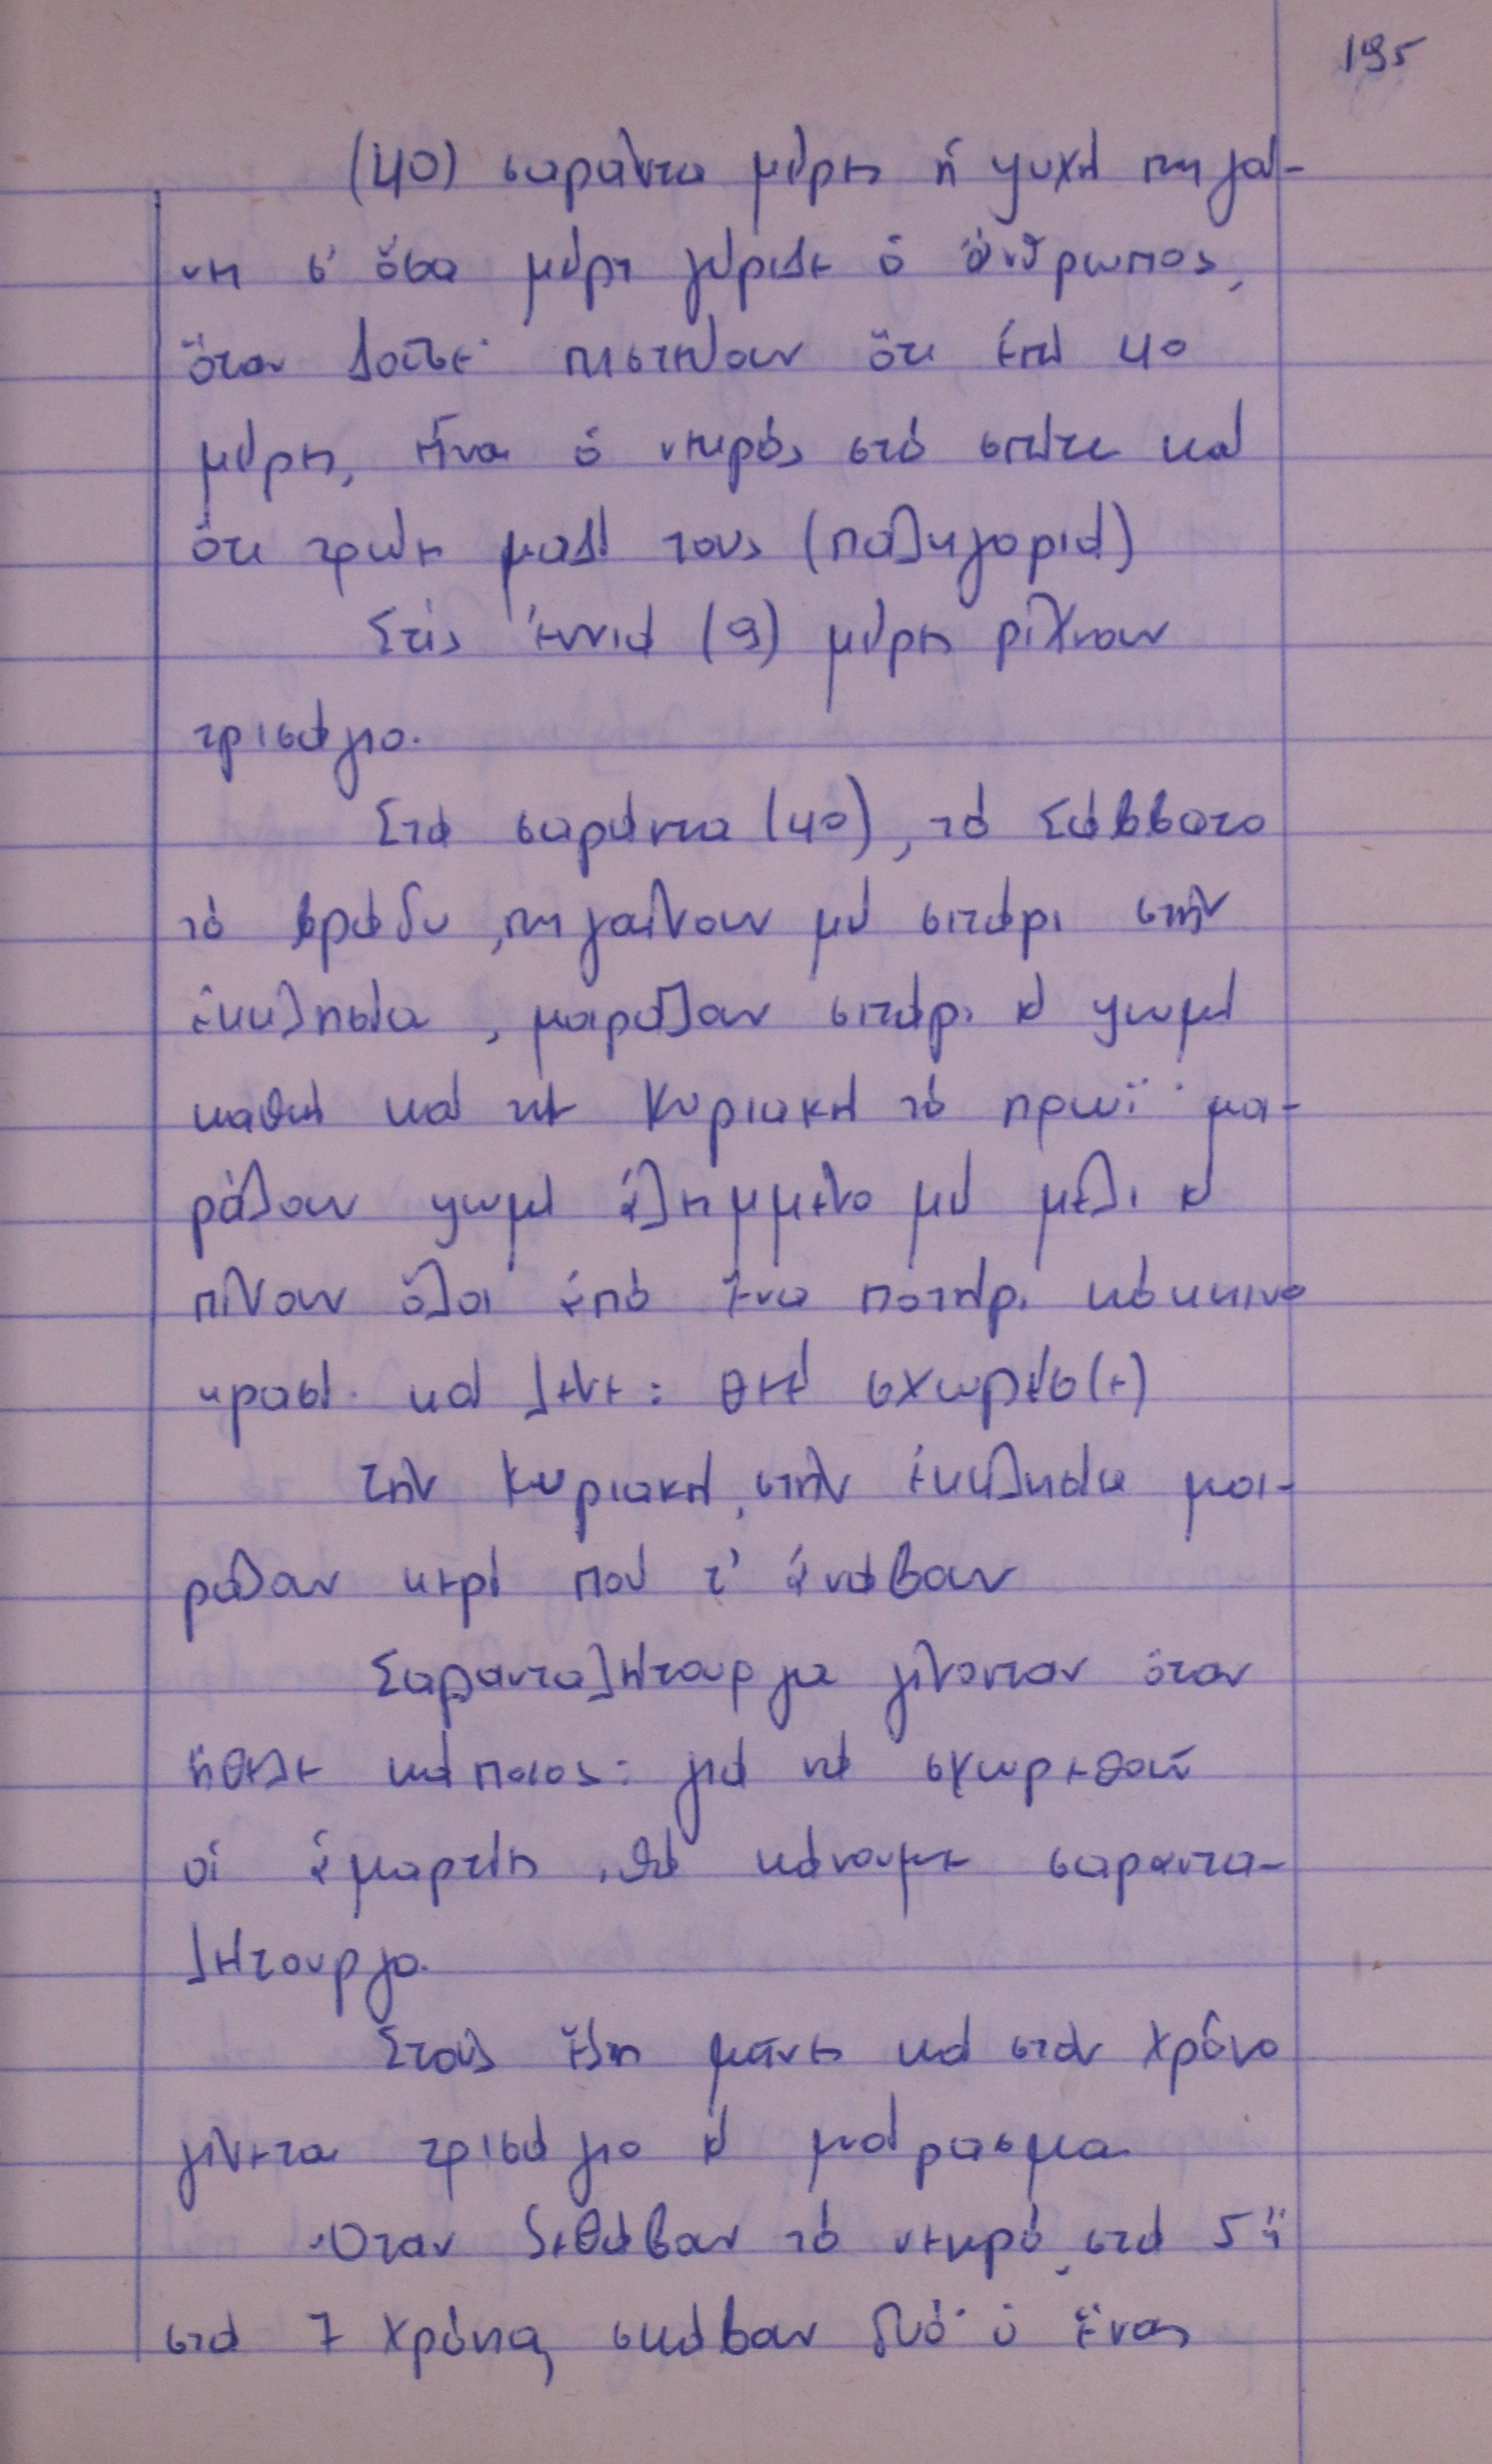 195
(40) σαράντα μέρες ἡ ψυχή πηγαί-
νει σ' ὅσα μέρη γύρισε ὁ ἄνθρωπος,
ὅταν ζοῦσε· πιστεύουν ὅτι ἐπί 40
μέρες, εἶναι ὁ νεκρός στό σπίτι καί
ὅτι τρώει μαζί τους (παληγοριά)
Στίς ἐννιά (9) μέρες ρίχνουν
τρισάγιο.
Στά σαράντα (40), τό Σάββατο
τό βράδυ, πηγαίνουν μέ σιτάρι στήν
ἐκκλησία, μοιράζαν σιτάρι κ' ψωμί
καθώς καί τή Κυριακή τό πρωΐ· μοι-
ράζουν ψωμί ἀλημμένο μέ μέλι κ'
πίνουν ὅλοι ἀπό ἕνα ποτήρι κόκκινο
κρασί καί λένε: θεέ σχωρέσ(ε)
Τήν Κυριακή, στήν ἐκκλησία μοι-
ράζαν κερί πού τ' ἀνάβαν
Σαρανταλείτουργα γίνονταν ὅταν
ἤθελε κάποιος: γιά νά σχωρεθοῦν
οἱ ἁμαρτίες, θά κάνουμε σαραντα-
λείτουργο.
Στούς ἕξη μῆνες καί στόν χρόνο
γίνεται τρισάγιο κ' μοίρασμα
Ὅταν ξεθάβαν τό νεκρό, στά 5 ἤ
στά 7 χρόνια, σκάβαν δυό· ὁ ἕνας